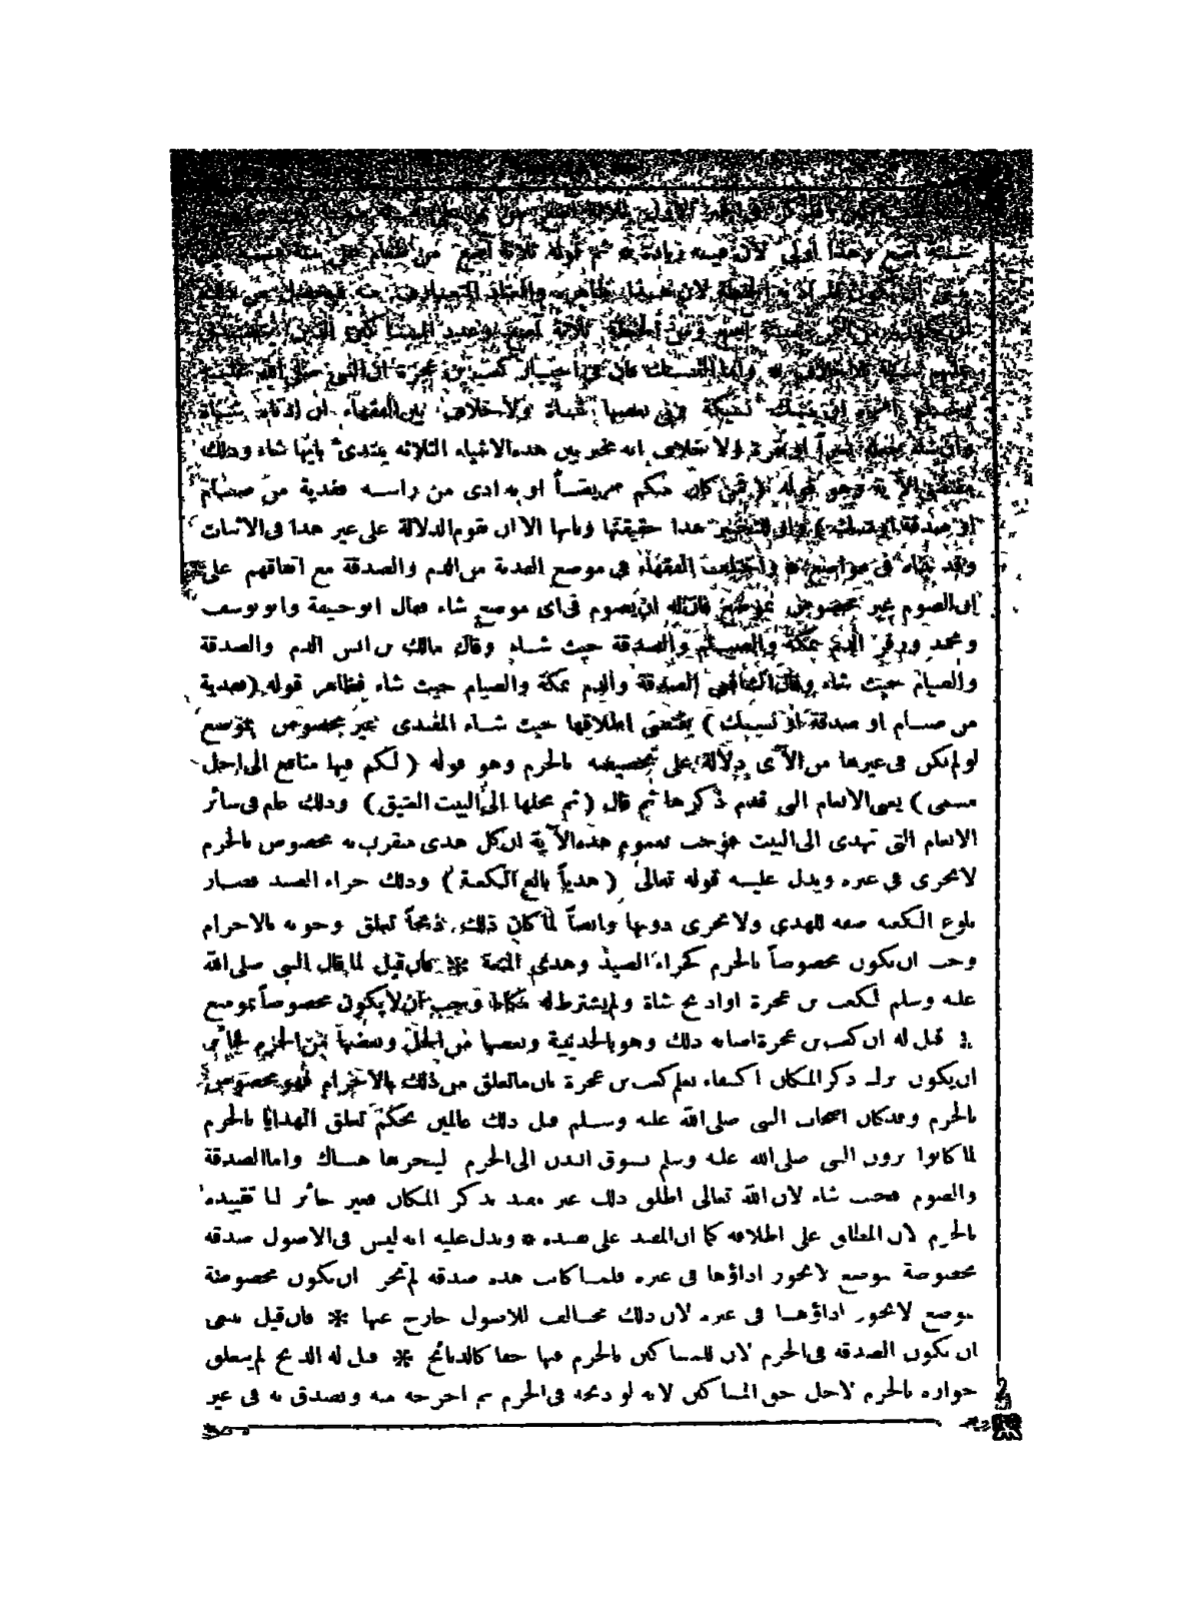 ستة آصع وهذا أولى لان فيه زيادة * ثم قوله ثلاثة آصع من طعام على ستة
عليهم ستة بلا خلاف * واما النسك فان فى اخبار كعب بن عجرة ان النبى صلى الله عليه
وسلم امره ان ينسك نسيكة وفى بعضها شاة ولا خلاف بين الفقهاء ان ادناه شاة
وان شاء جعله بعيراً او بقرة ولا خلاف انه مخير بين هذه الاشياء الثلاثة يبتدئ بايها شاء وذلك
مقتضى الآية وهو قوله ( فمن كان منكم مريضاً او به اذى من راسه ففدية من صيام
او صدقة او نسك ) واو للتخيير هذا حقيقتها وبابها الا ان تقوم الدلالة على غير هذا فى الاثبات
وقد بيناه فى مواضع * واختلف الفقهاء فى موضع الفدية من الدم والصدقة مع اتفاقهم على
ان الصوم غير مخصوص بموضع فان له ان يصوم فى اى موضع شاء فقال ابو حنيفة وابو يوسف
ومحمد وزفر الدم بمكة والصيام والصدقة حيث شاء وقال مالك بن انس الدم والصدقة
والصيام حيث شاء وقال الشافعى الصدقة والدم بمكة والصيام حيث شاء فظاهر قوله ( ففدية
من صيام او صدقة او نسك ) يقتضى اطلاقها حيث شاء المفتدى غير مخصوص بموضع
لو لم يكن فى غيرها من الآى دلالة على تخصيصه بالحرم وهو قوله ( لكم فيها منافع الى اجل
مسمى ) يعنى الانعام التى قدم ذكرها ثم قال ( ثم محلها الى البيت العتيق ) وذلك عام فى سائر
الانعام التى تهدى الى البيت فوجب بعموم هذه الآية ان كل هدى متقرب به مخصوص بالحرم
لا يجزى فى غيره ويدل عليه قوله تعالى ( هدياً بالغ الكعبة ) وذلك جزاء الصيد فصار
بلوغ الكعبة صفة للهدى ولا يجزى دونها وايضاً لما كان ذلك ذبحاً تعلق وجوبه بالاحرام
وجب ان يكون مخصوصاً بالحرم كجزاء الصيد وهدى المتعة * فان قيل لما قال النبى صلى الله
عليه وسلم لكعب بن عجرة او اذبح شاة ولم يشترط له مكانا وجب ان لا يكون مخصوصاً بموضع
قيل له ان كعب بن عجرة اصابه ذلك وهو بالحديبية وبعضها من الحل وبعضها من الحرم فجائز
ان يكون ترك ذكر المكان اكتفاء بعلم كعب بن عجرة بان ما تعلق من ذلك بالاحرام فهو مخصوص
بالحرم وقد كان اصحاب النبى صلى الله عليه وسلم قبل ذلك عالمين بحكم تعلق الهدايا بالحرم
لما كانوا يرون النبى صلى الله عليه وسلم يسوق البدن الى الحرم لينحرها هناك واما الصدقة
والصوم فحيث شاء لان الله تعالى اطلق ذلك غير مقيد بذكر المكان فغير جائز لنا تقييده
بالحرم لان المطلق على اطلاقه كما ان المقيد على تقييده * ويدل عليه انه ليس فى الاصول صدقة
مخصوصة بموضع لا يجوز اداؤها فى غيره فلما كانت هذه صدقة لم تجز ان تكون مخصوصة
بموضع لا يجوز اداؤها فى غيره لان ذلك مخالف للاصول خارج عنها * فان قيل ينبغى
ان تكون الصدقة فى الحرم لان للمساكين بالحرم فيها حقا كالذبائح * قيل له الذبح لم يتعلق
جوازه بالحرم لاجل حق المساكين لانه لو ذبحه فى الحرم ثم اخرجه منه وتصدق به فى غير